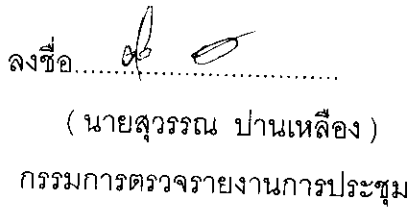 ลงชื่อ..............................
( นายสุวรรณ ปานเหลือง )
กรรมการตรวจรายงานการประชุม